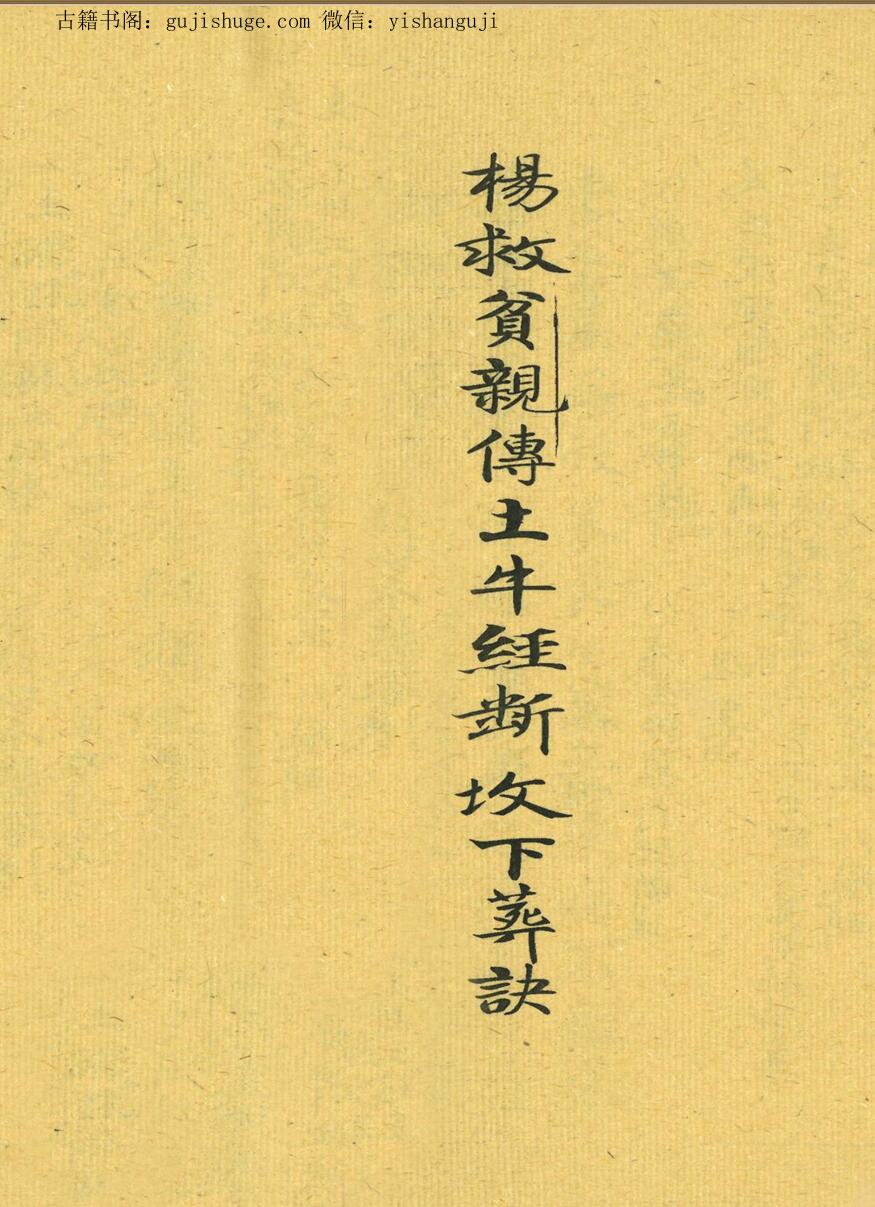 古籍书阁：gujishuge.com 微信：yishanguji
楊救貧親傳土牛經断坟下葬訣